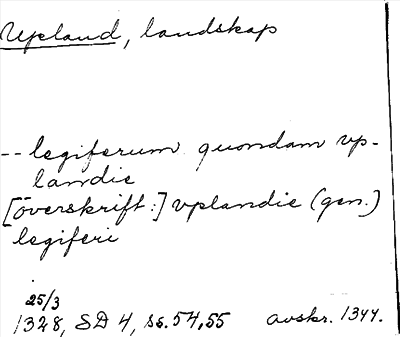 Upland, landskap
-- legiferum quondam vp-
landie
[överskrift:] vplandie (gen.)
legiferi
25/3
1328, SD 4, ss. 54,55 avskr. 1344.